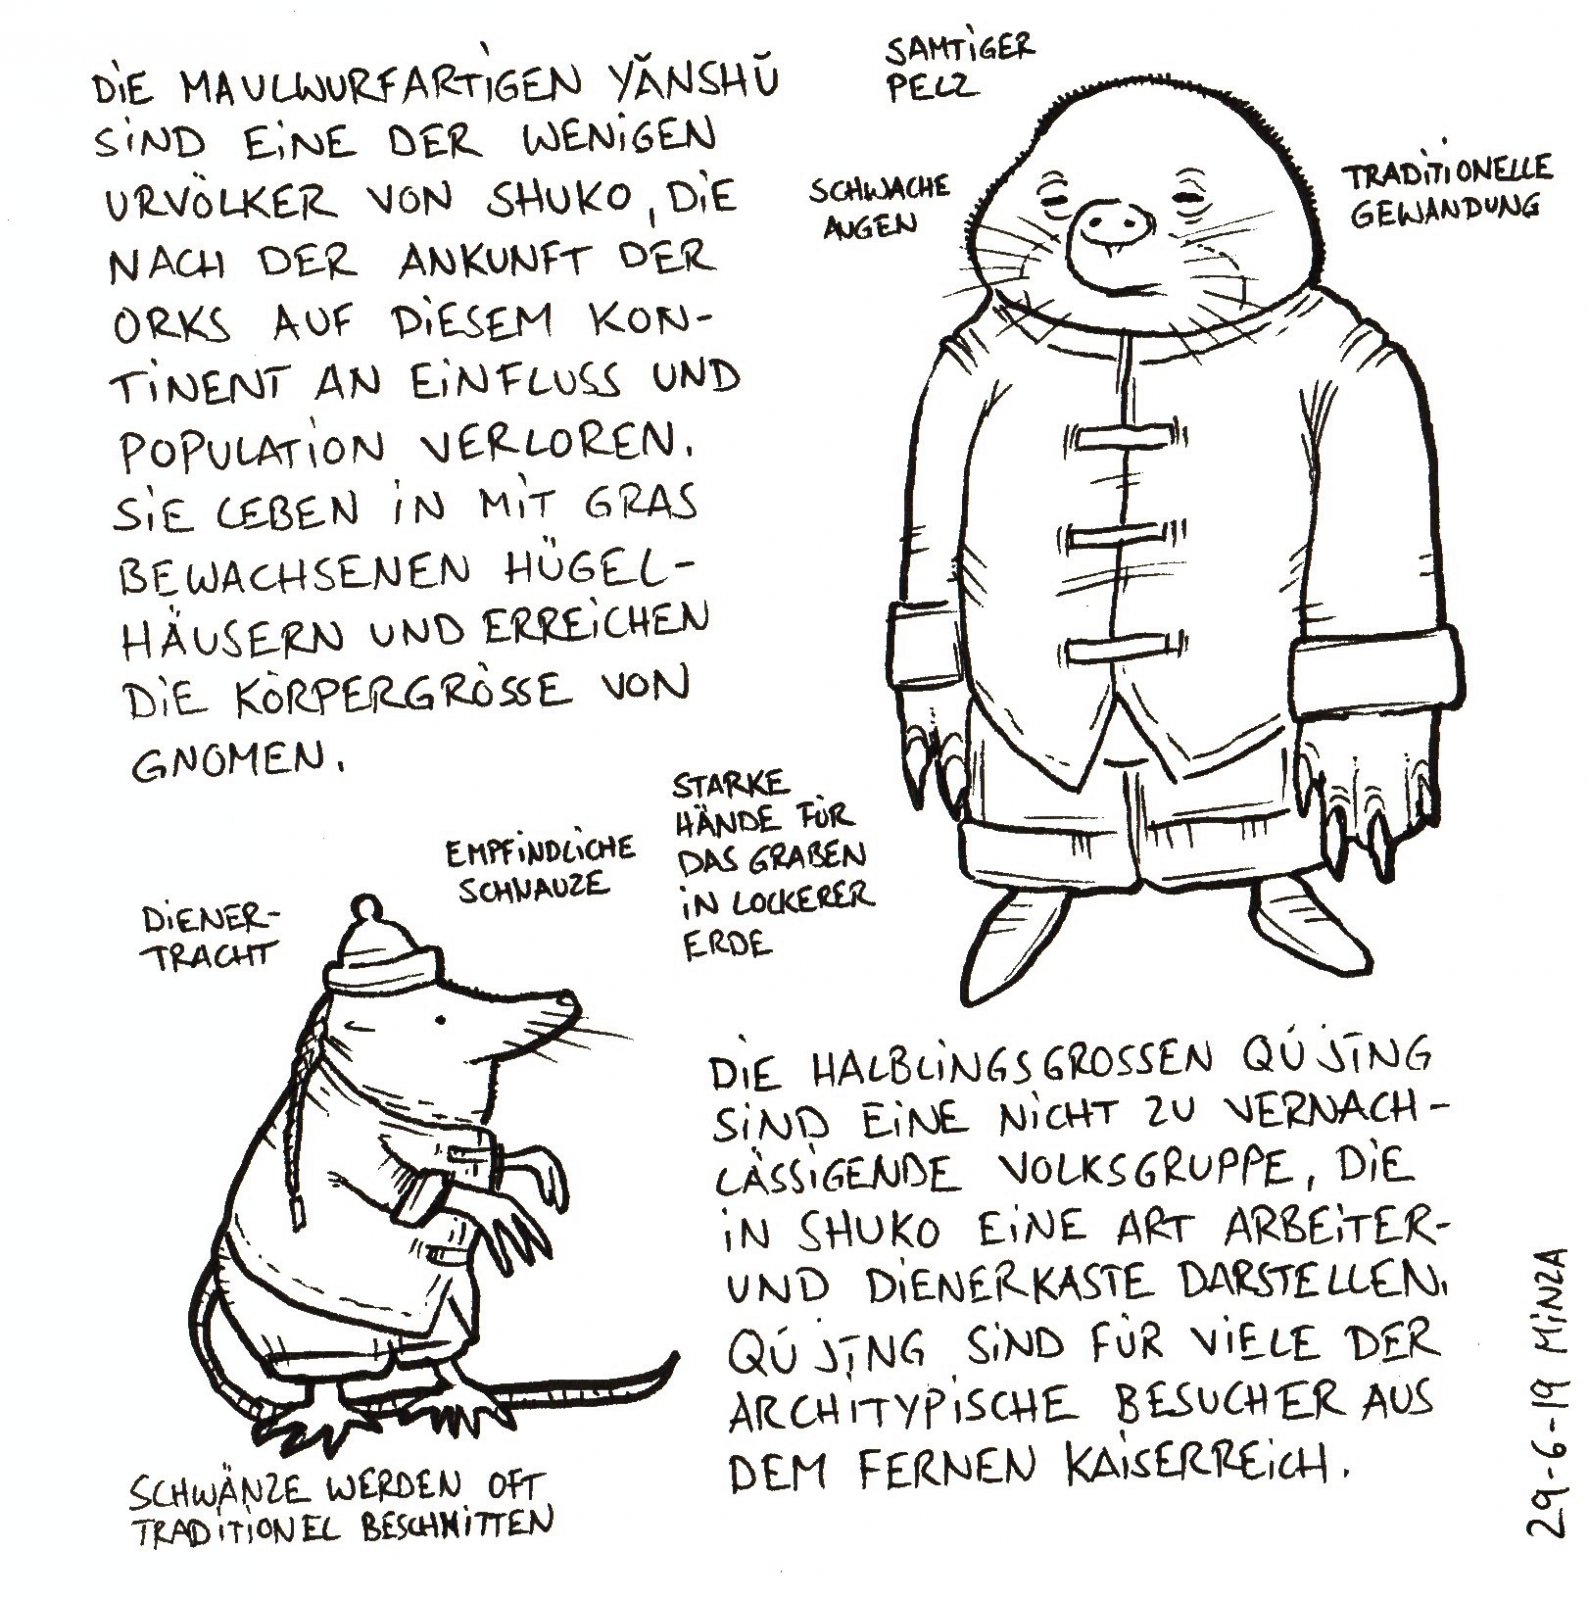 DIE MAULWURFARTIGEN YĂNSHŬ
SIND EINE DER WENIGEN
URVÖLKER VON SHUKO, DIE
NACH DER ANKUNFT DER
ORKS AUF DIESEM KON-
TINENT AN EINFLUSS UND
POPULATION VERLOREN.
SIE LEBEN IN MIT GRAS
BEWACHSENEN HÜGEL-
HÄUSERN UND ERREICHEN
DIE KÖRPERGRÖSSE VON
GNOMEN.
SAMTIGER
PELZ
SCHWACHE
AUGEN
TRADITIONELLE
GEWANDUNG
STARKE
HÄNDE FÜR
DAS GRABEN
IN LOCKERER
ERDE
EMPFINDLICHE
SCHNAUZE
DIENER-
TRACHT
SCHWÄNZE WERDEN OFT
TRADITIONEL BESCHNITTEN
DIE HALBLINGSGROSSEN QÚJĪNG
SIND EINE NICHT ZU VERNACH-
LÄSSIGENDE VOLKSGRUPPE, DIE
IN SHUKO EINE ART ARBEITER-
UND DIENERKASTE DARSTELLEN.
QÚJĪNG SIND FÜR VIELE DER
ARCHITYPISCHE BESUCHER AUS
DEM FERNEN KAISERREICH.
29-6-19 MINZA